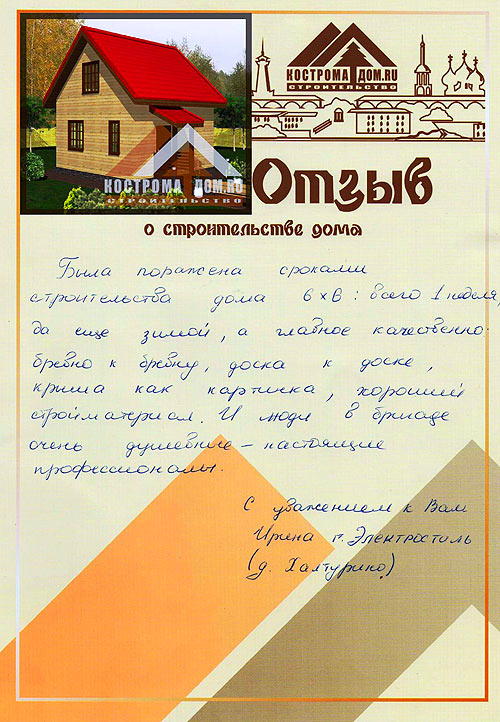 КОСТРОМА ДОМ.RU
СТРОИТЕЛЬСТВО
КОСТРОМА ДОМ.RU
СТРОИТЕЛЬСТВО
Отзыв
о строительстве дома
Была поражена сроками
строительства дома 6х6: всего 1 неделя
да еще зимой, а главное качественно-
бревно к бревну, доска к доске,
крыша как картинка, хороший
стройматериал. И люди в бригаде
очень душевные - настоящие
профессионалы.
С уважением к Вам
Ирина г. Электросталь
(д. Халтурино)